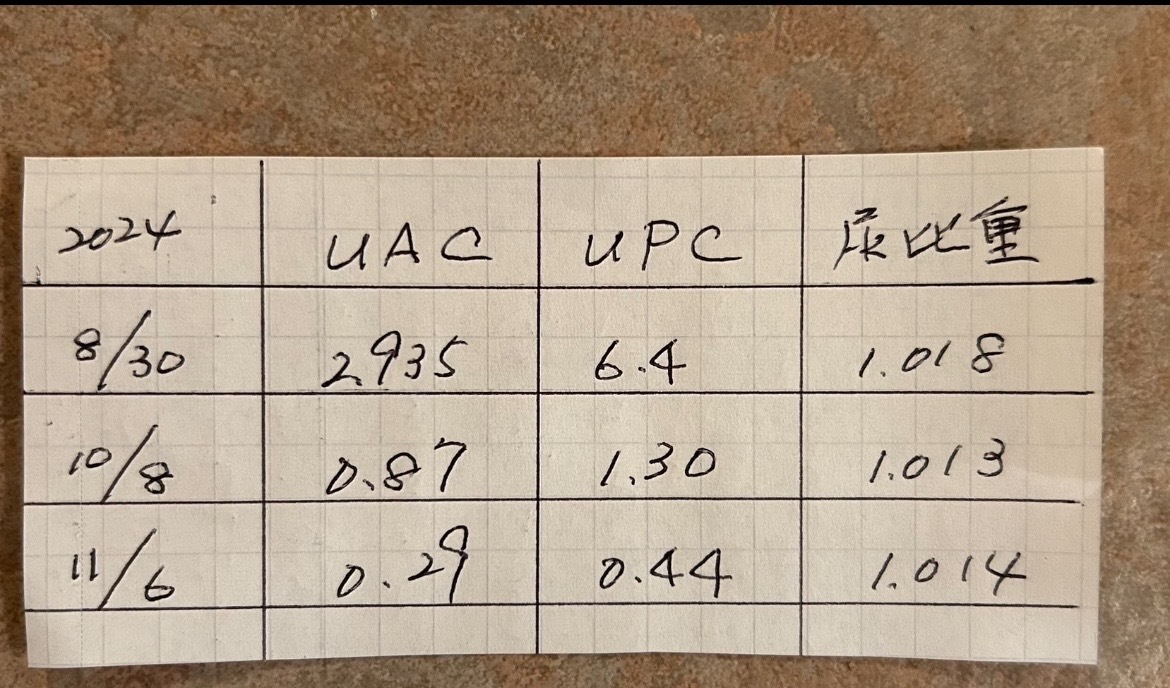 2024 UAC UPC 尿比重
8/30 2.935 6.4 1.018
10/8 0.87 1.30 1.013
11/6 0.29 0.44 1.014